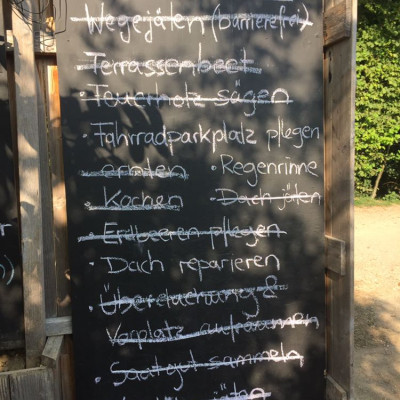 Wegejäten (barrierefrei)
Terrassenbeet
· Feuerholz sägen
· Fahrradparkplatz pflegen
ernten · Regenrinne
Kochen · Dach jäten
· Erdbeeren pflegen
· Dach reparieren
· Überdachung &
Vorplatz aufräumen
· Saatgut sammeln
jäten